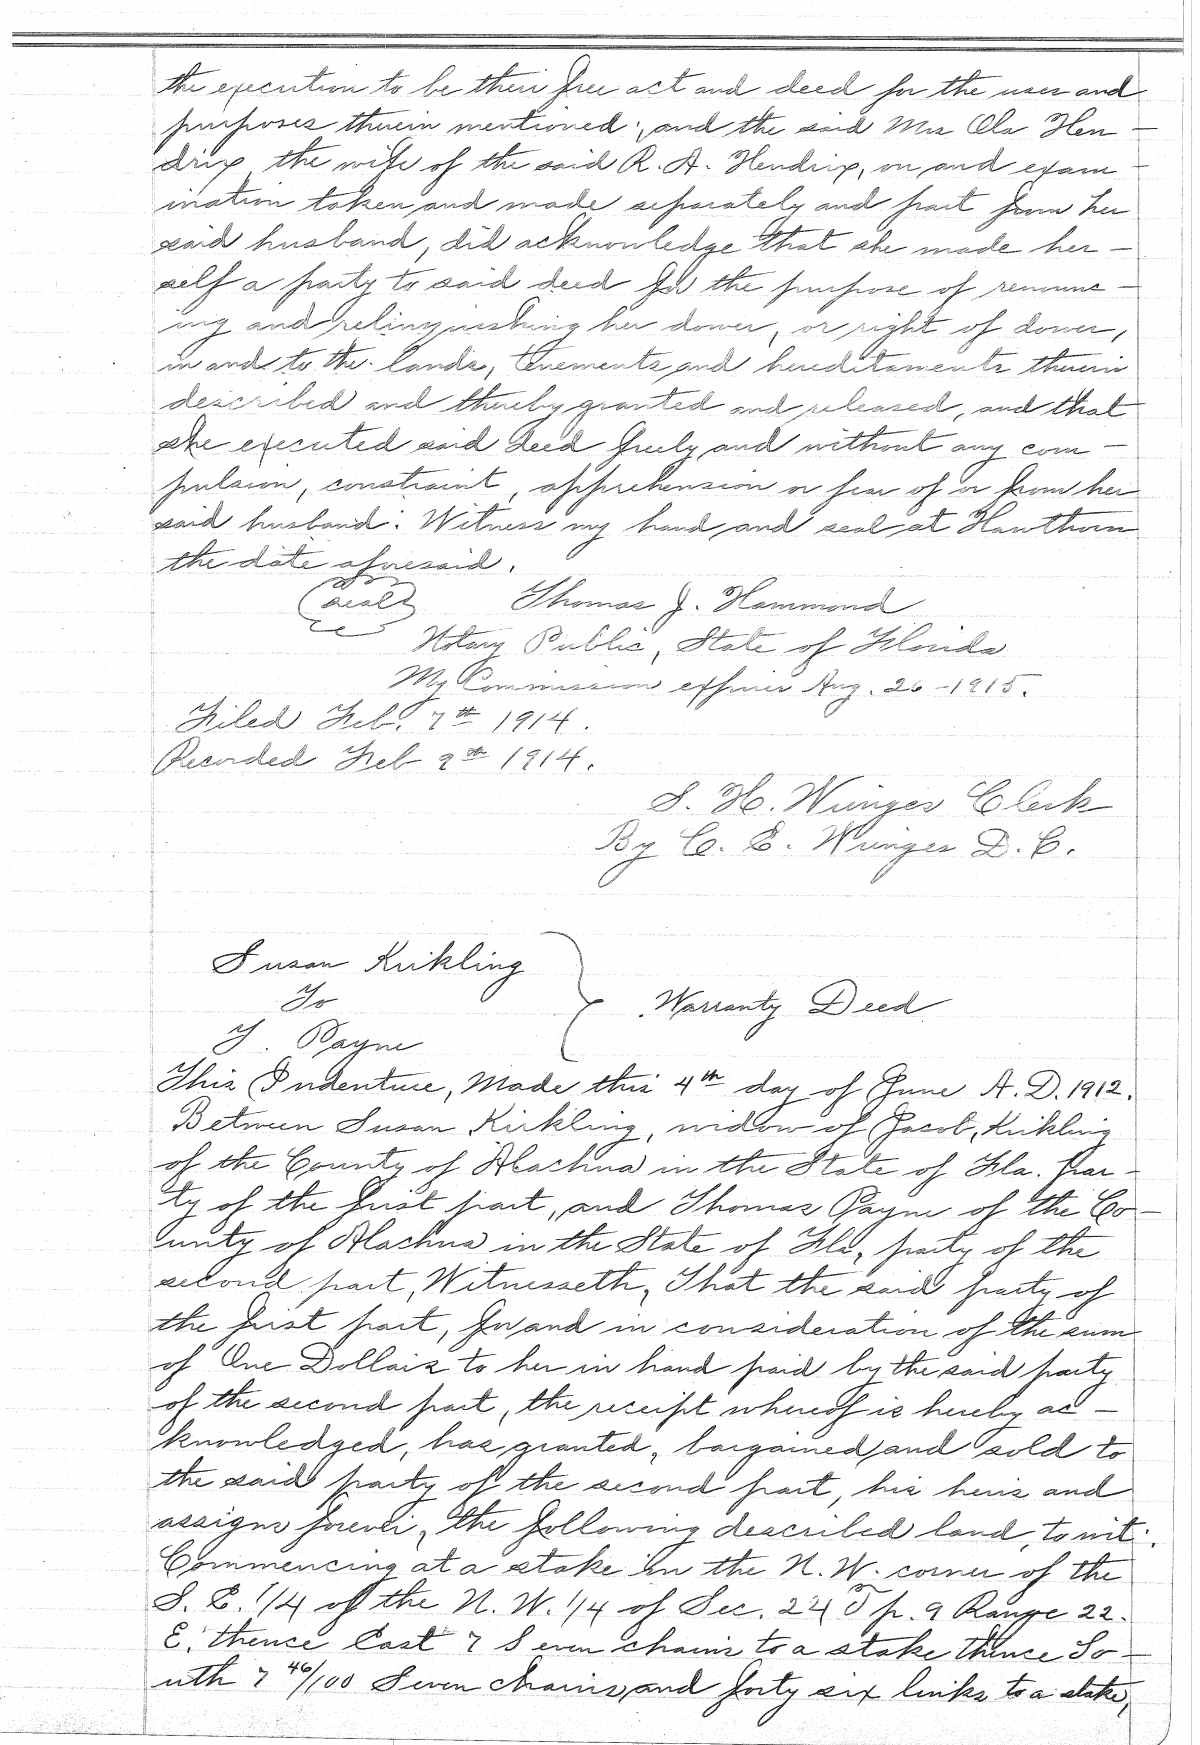 the execution to be their free act and deed for the uses and
purposes therein mentioned; and the said Mrs Ola Hen-
drix, the wife of the said R. A. Hendrix, on, and exam-
ination taken and made separately and part from her
said husband, did acknowledge that she made her-
self a party to said deed for the purpose of renounc-
ing and relinquishing her dower, or right of dower,
in and to the lands, tenements, and hereditaments therein
described and thereby granted and released, and that
she executed said deed freely, and without any com-
pulsion, constraint, apprehension or fear of or from her
said husband: Witness my hand, and seal at Hawthorn
the date aforesaid.
(seal) Thomas J. Hammond
Notary Public, State of Florida
My Commission expires Aug. 26-1915.
Filed Feb. 7th 1914.
Recorded Feb 9th 1914.
S. H. Wienges Clerk
By C. E. Wienges D. C.
Susan Kirkling
To
T. Payne
Warranty Deed
This Indenture, Made this 4th day of June A.D. 1912.
Between Susan Kirkling, widow of Jacob, Kirkling
of the County of Alachua in the State of Fla. par-
ty of the first part, and Thomas Payne of the Co-
unty of Alachua in the State of Fla, party of the
second part, Witnesseth, That the said party of
the first part, for, and in consideration of the sum
of One Dollars to her in hand paid by the said party
of the second part, the receipt whereof is hereby ac-
knowledged, has, granted, bargained, and sold to
the said party of the second part, his heirs and
assigns forever, the following described land, to wit:
Commencing at a stake in the N. W. corner of the
S. E. 1/4 of the N. W. 1/4 of Sec. 24 Tp. 9 Range 22.
E. thence East 7 Seven chains to a stake thence So-
uth 7 46/100 Seven chains, and forty six links to a stake,